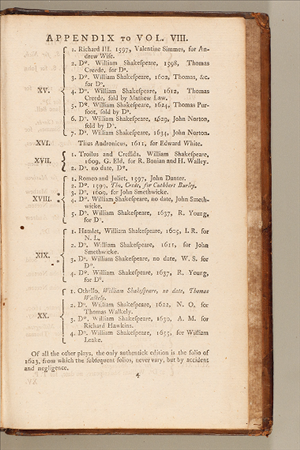 APPENDIX TO VOL. VIII.
1. Richard III. 1597, Valentine Simmes, for An-
drew Wise.
2. Do. William Shakespeare, 1598, Thomas
Creede, for Do.
3. Do. William Shakespeare, 1602, Thomas, &c.
for Do.
XV.
4. Do. William Shakespeare, 1612, Thomas
Creede, sold by Mathew Law.
5. Do. William Shakespeare, 1624, Thomas Pur-
foot, sold by Do.
6. Do. William Shakespeare, 1629, John Norton,
sold by Do.
7. Do. William Shakespeare, 1634, John Norton.
XVI.
Titus Andronicus, 1611, for Edward White.
XVII.
1. Troilus and Cressida, William Shakespeare,
1609, G. Eld, for R. Bonian and H. Walley.
2. Do. no date, Do.
XVIII.
1. Romeo and Juliet, 1597, John Danter.
2. Do. 1599, Tho. Crede, for Cuthbert Burby.
3. Do. 1609, for John Smethwicke.
4. Do. William Shakespeare, no date, John Smeth-
wicke.
5. Do. William Shakespeare, 1637, R. Young,
for Do.
XIX.
1. Hamlet, William Shakespeare, 1605, I. R. for
N. L.
2. Do. William Shakespeare, 1611, for John
Smethwicke.
3. Do. William Shakespeare, no date, W. S. for
Do.
4. Do. William Shakespeare, 1637, R. Young,
for Do.
XX.
1. Othello, William Shakespeare, no date, Thomas
Walkely.
2. Do. William Shakespeare, 1622, N. O. for
Thomas Walkely.
3. Do. William Shakespeare, 1630, A. M. for
Richard Hawkins.
4. Do. William Shakespeare, 1655, for William
Leake.
Of all the other plays, the only authentick edition is the folio of
1623, from which the subsequent folios, never vary, but by accident
and negligence.